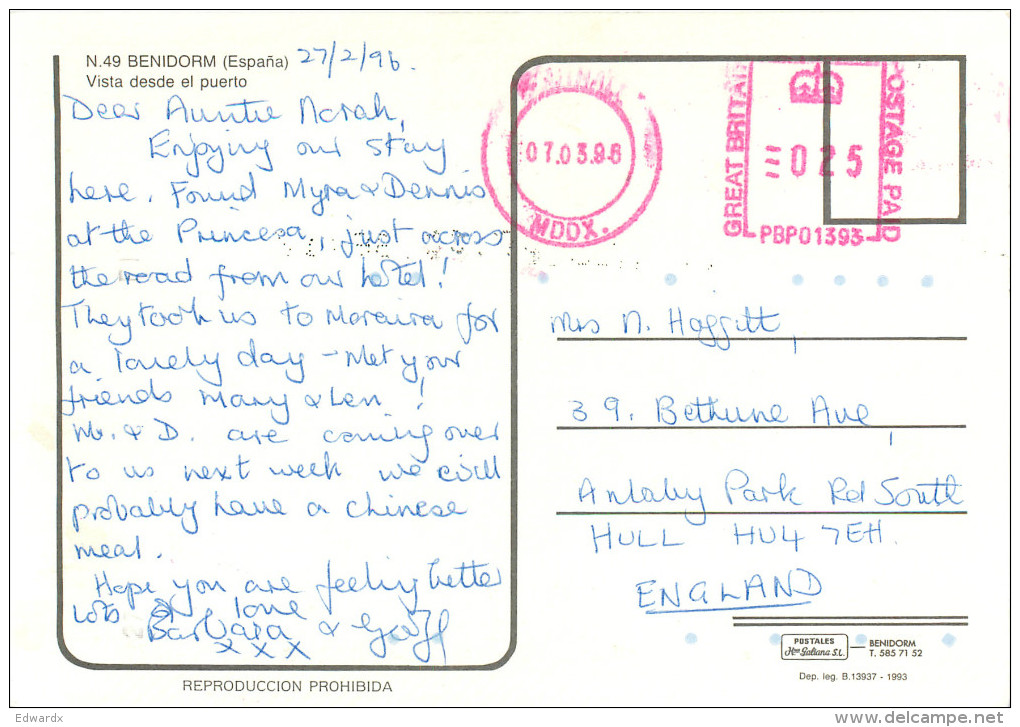 N.49 BENIDORM (España) 27/2/96.
Vista desde el puerto
Dear Auntie Norah,
Enjoying our stay
here. Found Myra & Dennis
at the Princesa, just across
the road from our hotel!
They took us to Moraira for
a lovely day - Met your
friends Mary & Len!
M. & D. are coming over
to us next week we will
probably have a chinese
meal.
Hope you are feeling better
Lots of love
Barbara & Geoff
x x x
REPRODUCCION PROHIBIDA
07.03.96
MDDX.
GREAT BRITAIN
=025
POSTAGE PAID
PBP01393
Mrs N. Hoggitt,
39. Bethune Ave,
Anlaby Park Rd South
HULL HU4 7EH.
ENGLAND
POSTALES
Hnos Galiana S.L.
BENIDORM
T. 585 71 52
Dep. leg. B.13937 - 1993
Edwardx
delcampe.net